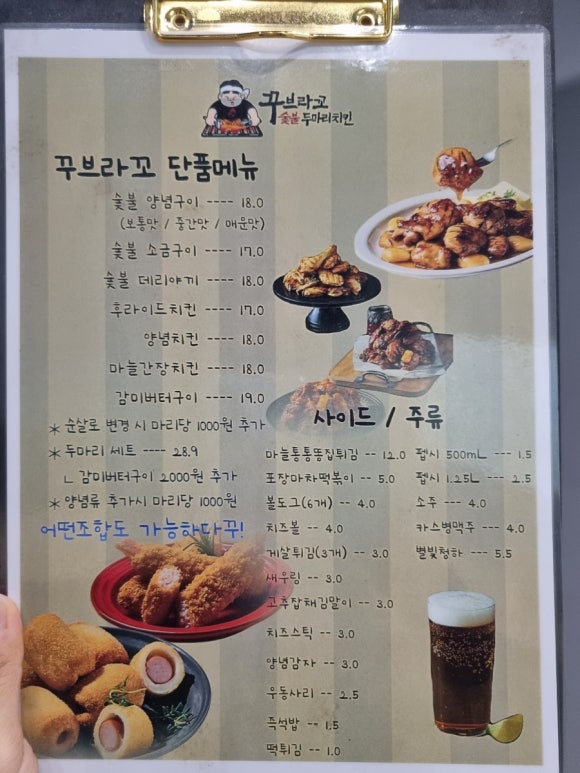 꾸브라꼬
숯불 두마리치킨
꾸브라꼬 단품메뉴
숯불 양념구이 ---- 18.0
(보통맛 / 중간맛 / 매운맛)
숯불 소금구이 ---- 17.0
숯불 데리야끼 ---- 18.0
후라이드치킨 ---- 17.0
양념치킨 ---- 18.0
마늘간장치킨 ---- 18.0
감미버터구이 ---- 19.0
* 순살로 변경 시 마리당 1000원 추가
* 두마리 세트 ---- 28.9
ㄴ 감미버터구이 2000원 추가
* 양념류 추가시 마리당 1000원
어떤조합도 가능하다꾸!
사이드 / 주류
마늘통통똥집튀김 -- 12.0
포장마차떡볶이 -- 5.0
볼도그(6개) -- 4.0
치즈볼 -- 4.0
게살튀김(3개) -- 3.0
새우링 -- 3.0
고추잡채김말이 -- 3.0
치즈스틱 -- 3.0
양념감자 -- 3.0
우동사리 -- 2.5
즉석밥 -- 1.5
떡튀김 -- 1.0
펩시 500mL --- 1.5
펩시 1.25L --- 2.5
소주 --- 4.0
카스병맥주 --- 4.0
별빛청하 --- 5.5